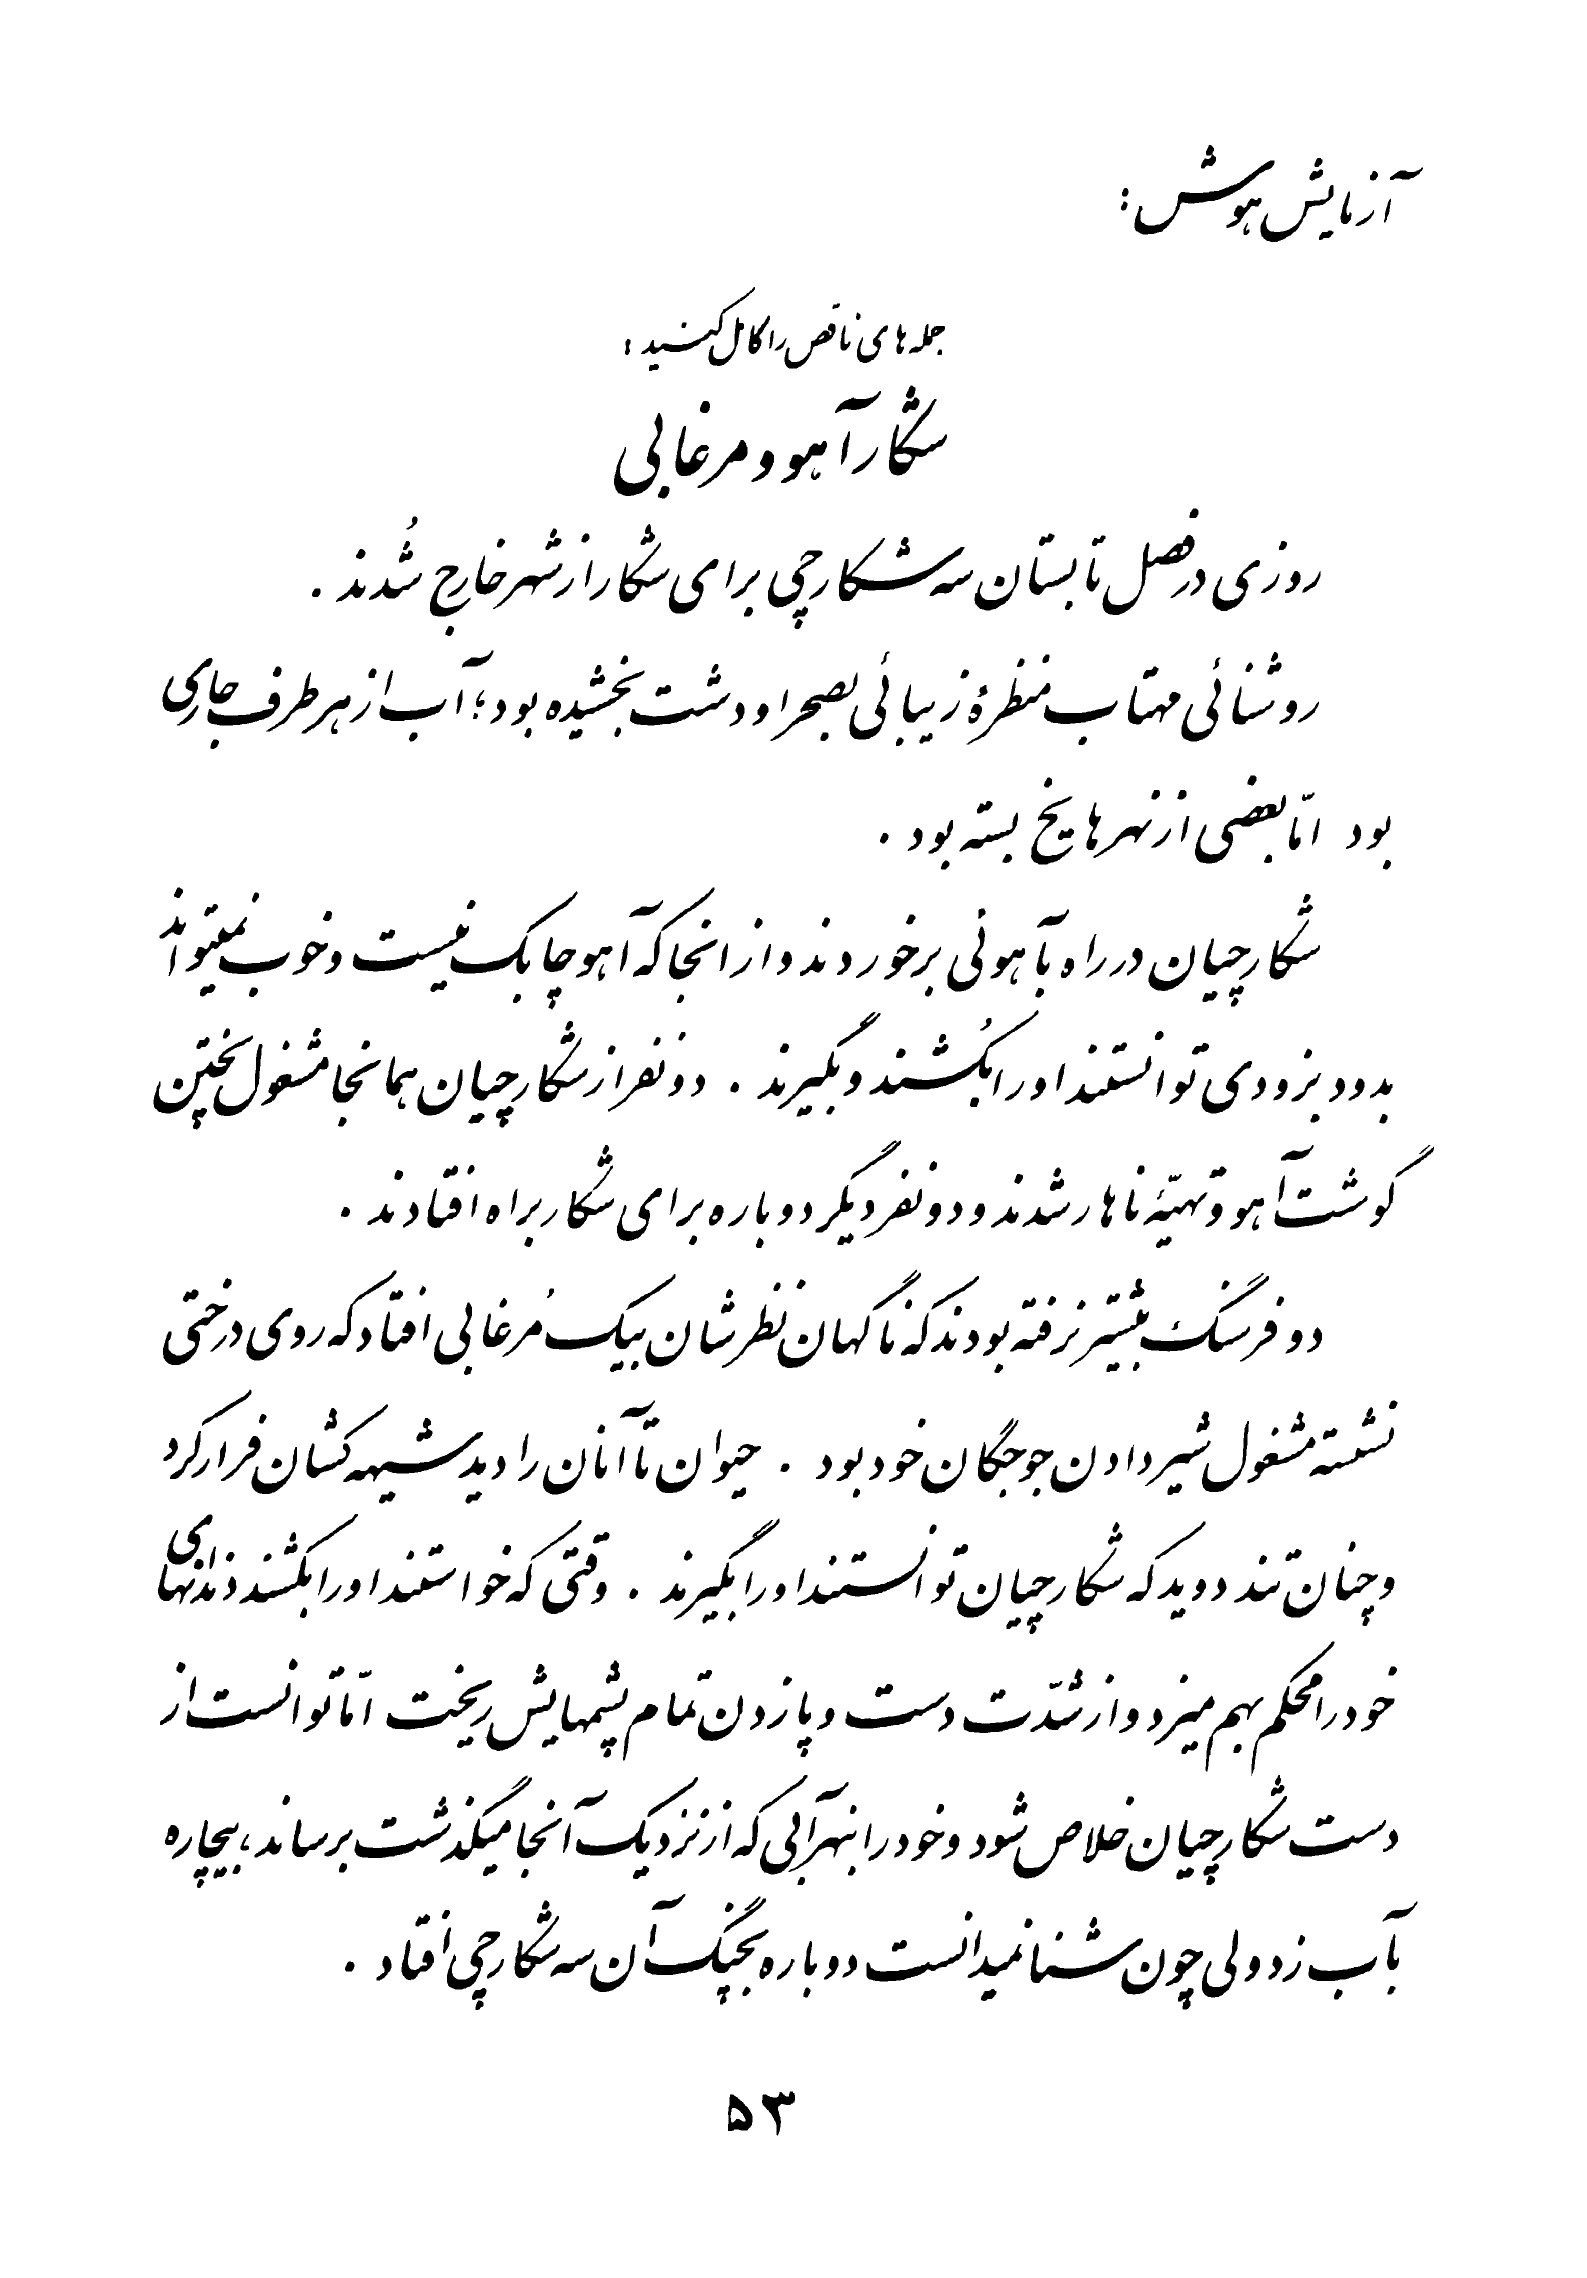 آزمایش هوش:
جمله‌های ناقص را کامل کنید:
شکار آهو و مرغابی
روزی در فصل تابستان سه شکارچی برای شکار از شهر خارج شُدند.
روشنائی مهتاب منظرهٔ زیبائی بصحرا و دشت بخشیده بود؛ آب از هر طرف جاری
بود امّا بعضی از نهرها یخ بسته بود.
شکارچیان در راه بآهوئی برخوردند و از انجا که آهو چابک نیست و خوب نمیتواند
بدود بزودی توانستند او را بکُشند و بگیرند. دو نفر از شکارچیان همانجا مشغول پختن
گوشت آهو و تهیّهٔ ناهار شدند و دو نفر دیگر دوباره برای شکار براه افتادند.
دو فرسنگ بیشتر نرفته بودند که ناگهان نظرشان بیک مُرغابی افتاد که روی درختی
نشسته مشغول شیر دادن جوجگان خود بود. حیوان تا آنان را دید شیهه کشان فرار کرد
و چنان تند دوید که شکارچیان توانستند او را بگیرند. وقتی که خواستند او را بکشند دندانهای
خود را محکم بهم میزد و از شدّت دست و پا زدن تمام پشمهایش ریخت امّا توانست از
دست شکارچیان خلاص شود و خود را بنهر آبی که از نزدیک آنجا میگذشت برساند، بیچاره
بآب زد ولی چون شنا نمیدانست دوباره بچنگ آن سه شکارچی افتاد.
۵۳